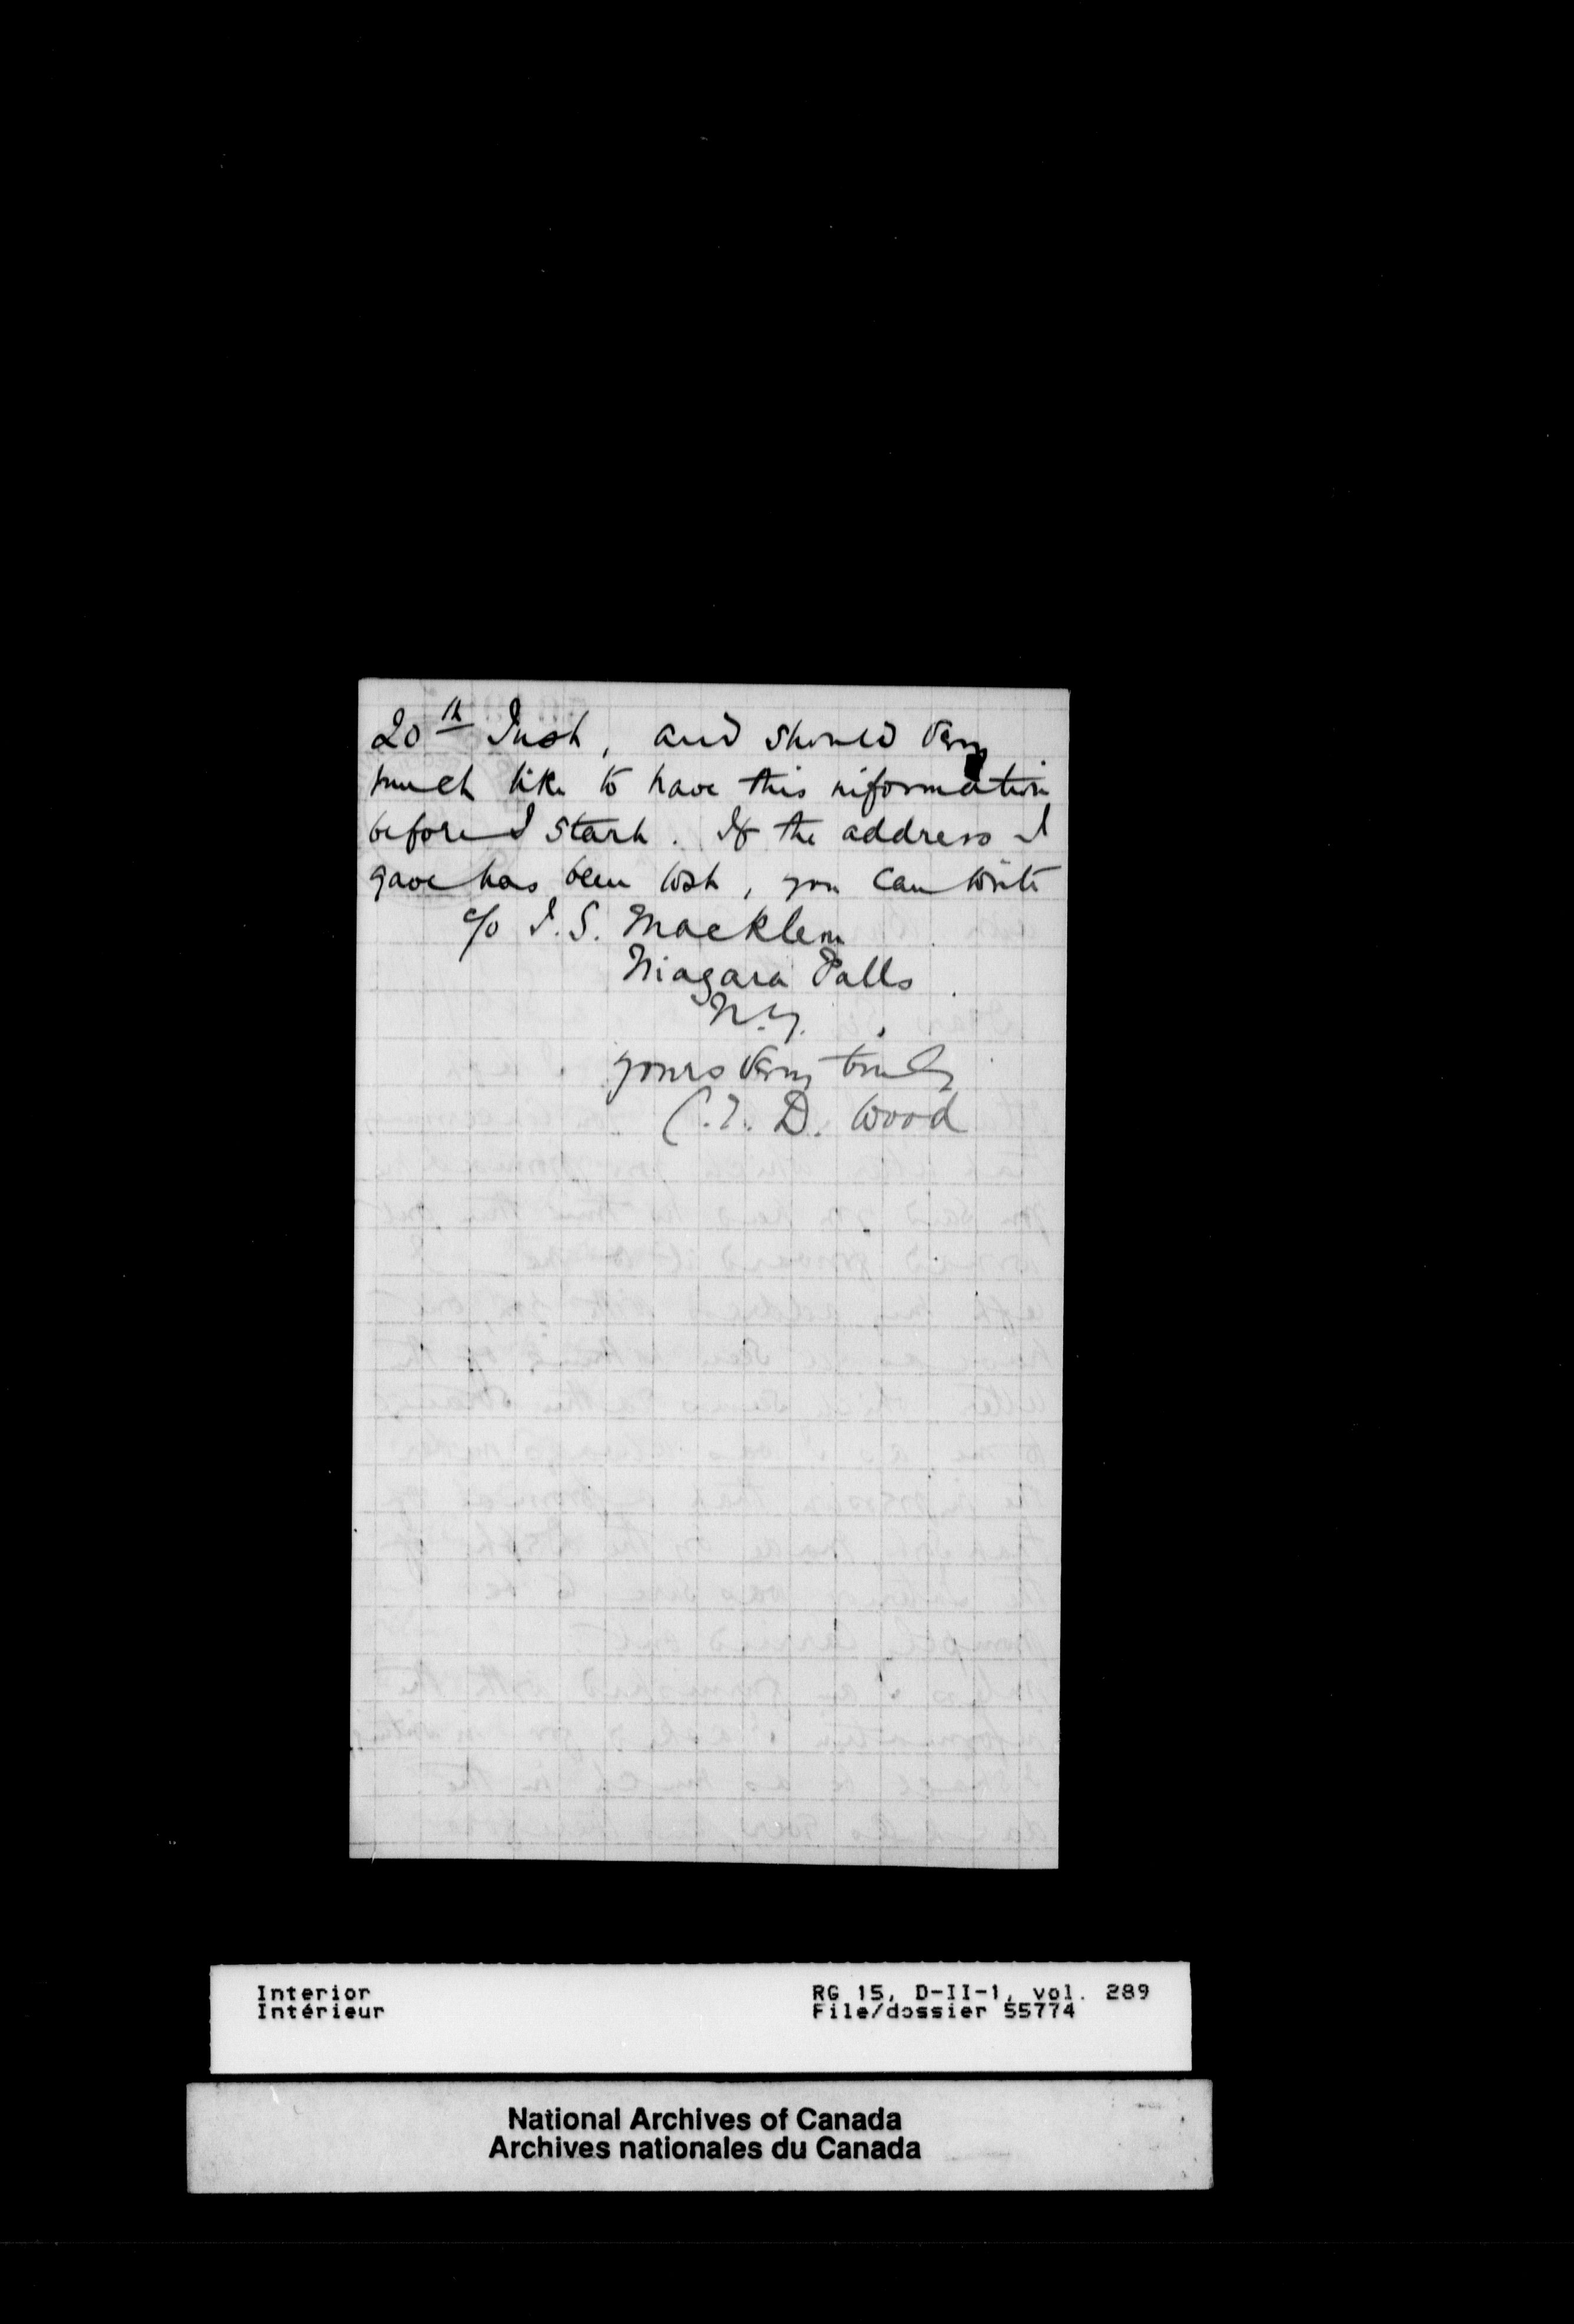 20th Inst, and should very
much like to have this information
before I start. If the address I
gave has been lost, you can write
c/o I. S. Macklem
Niagara Falls
N.Y.
yours very truly
C. T. D. Wood
Interior
Intérieur
RG 15, D-II-1, vol. 289
File/dossier 55774
National Archives of Canada
Archives nationales du Canada